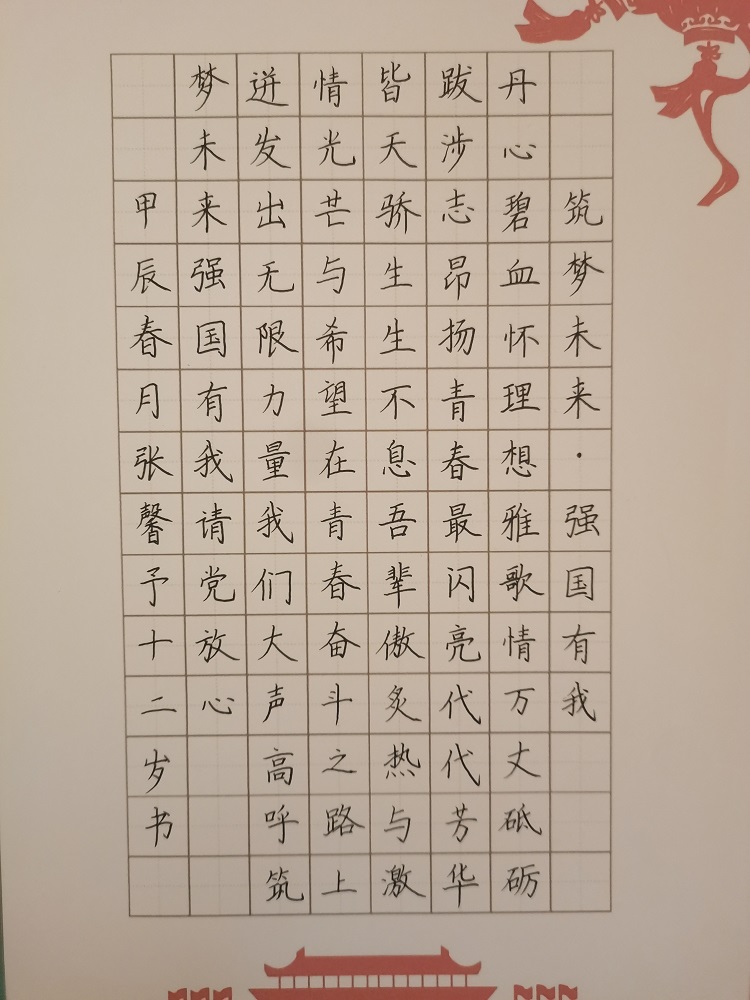 筑梦未来·强国有我
丹心碧血怀理想雅歌情万丈砥砺
跋涉志昂扬青春最闪亮代代芳华
皆天骄生生不息吾辈傲炙热与激
情光芒与希望在青春奋斗之路上
迸发出无限力量我们大声高呼筑
梦未来强国有我请党放心
甲辰春月张馨予十二岁书